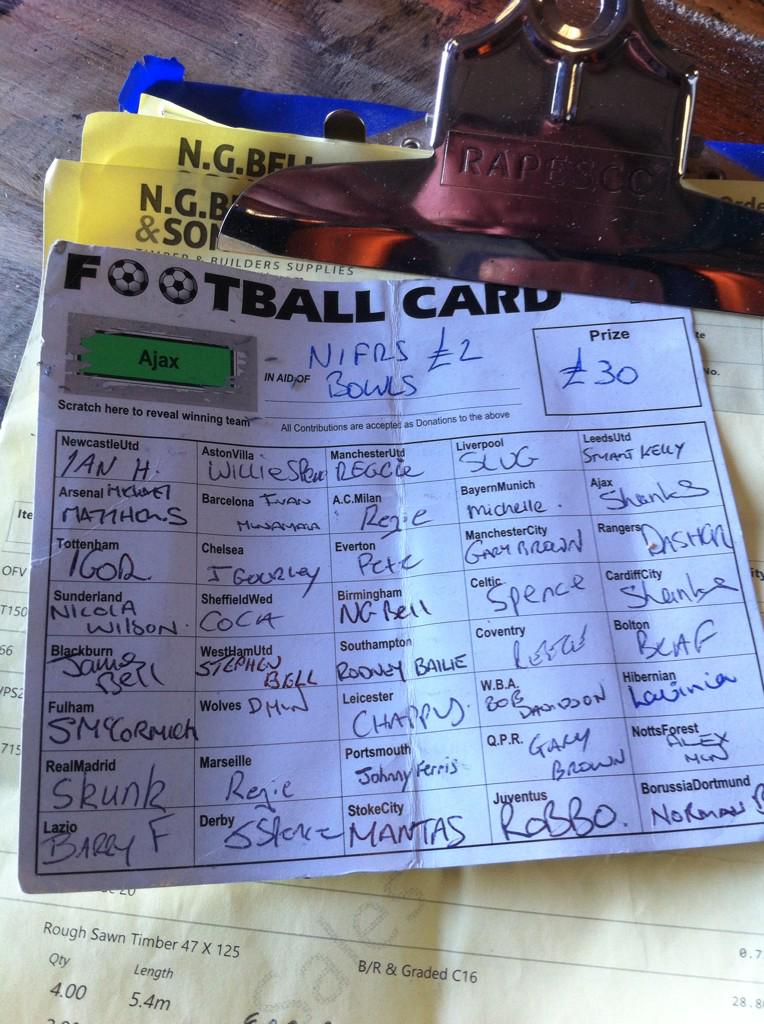 RAPESCO
N.G.BELL
N.G.B
& SON
TIMBER & BUILDERS SUPPLIES
FOOTBALL CARD
Ajax
Scratch here to reveal winning team
IN AID OF
NIFRS £2
BOWLS
All Contributions are accepted as Donations to the above
Prize
£30
NewcastleUtd IAN H.
AstonVilla WILLIE
ManchesterUtd REGGIE
Liverpool SLUG
LeedsUtd STUART KELLY
Arsenal MICHAEL MATTHEWS
Barcelona IVAN MCNAMARA
A.C.Milan Regie
BayernMunich Michelle.
Ajax Shanks
Tottenham IGOR
Chelsea J GOURLEY
Everton Pete
ManchesterCity GARY BROWN
Rangers
Sunderland NICOLA WILSON.
SheffieldWed COCA
Birmingham NG Bell
Celtic Spence
CardiffCity Shanks
Blackburn James Bell
WestHamUtd STEPHEN BELL
Southampton RODNEY BAILIE
Coventry
Bolton
Fulham S MCCORMICK
Wolves
Leicester CHAPPY.
W.B.A. BOB DAVIDSON
Hibernian Lavinia
RealMadrid Skunk
Marseille Regie
Portsmouth Johnny Ferris
Q.P.R. GARY BROWN
NottsForest ALEX
Lazio BARRY F
Derby
StokeCity MANTAS
Juventus ROBBO.
BorussiaDortmund NORMAN B
Rough Sawn Timber 47 X 125
B/R & Graded C16
Qty Length
4.00 5.4m